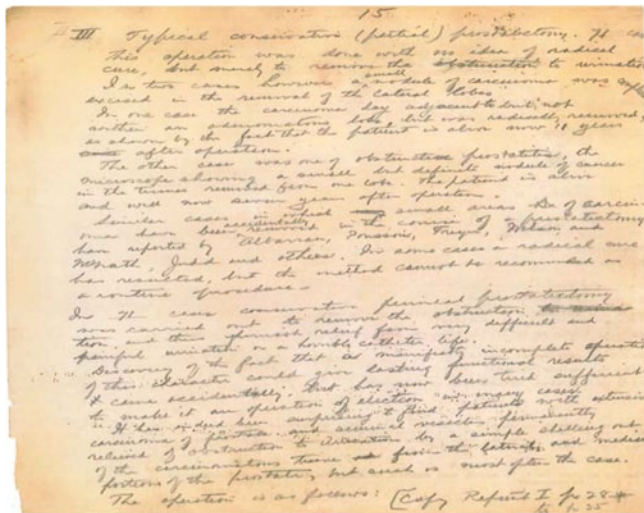 15
III Typical conservative (partial) prostatectomy. 71 cases
This operation was done with no idea of radical
cure, but merely to remove the obstruction to urination
In two cases however a small nodule of carcinoma was
excised in the removal of the lateral lobes
In one case the carcinoma lay adjacent to but not
within an adenomatous lobe, but was radically removed,
as shown by the fact that the patient is alive now 11 years
after operation.
The other case was one of obstructive prostatitis, the
microscope showing a small but definite nodule of cancer
in the tissues removed from one lobe. The patient is alive
and well now seven years after operation.
Similar cases in which small areas of carcin-
oma have been accidentally removed in the course of a prostatectomy
have reported by Albarran, Freyer, Wilson and
McGrath, Judd and others. In some cases a radical cure
has resulted, but the method cannot be recommended as
a routine procedure.
In 71 cases conservative perineal prostatectomy
was carried out to remove the obstruction
and thus furnish relief from very difficult and
painful urination or a horrible catheter life.
Discovery of the fact that a manifestly incomplete operation
of this character could give lasting functional results
came accidentally. But has now been tried sufficient
to make it an operation of election in many cases.
It has indeed been surprising to find patients with extensive
carcinoma of prostate and seminal vesicles permanently
relieved of obstruction to urination by a simple shelling out
of the carcinomatous tissue from the lateral and median
portions of the prostate, but such is most often the case.
The operation is as follows: (Copy Reprint I p. 28
to p. 35